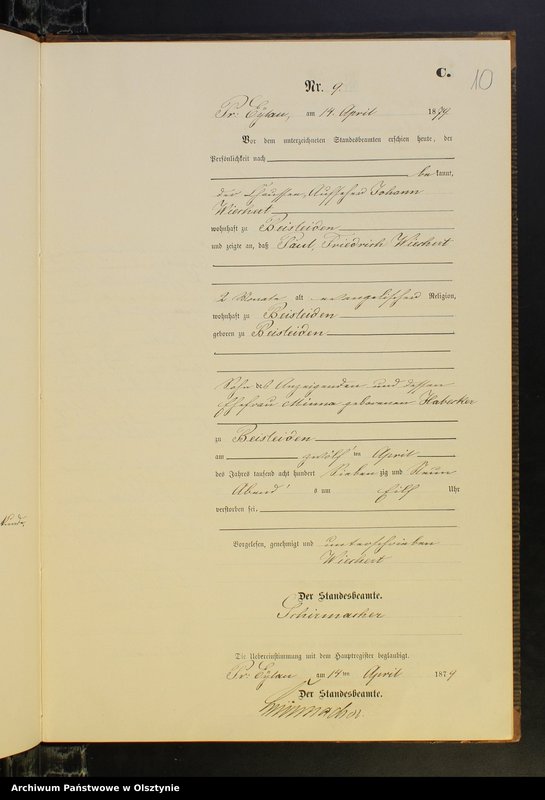 C.
10
Nr. 9.
Pr. Eylau, am 14. April 1879
Vor dem unterzeichneten Standesbeamten erschien heute, der
Persönlichkeit nach
be kannt,
der Chaussee, Aufseher Johann
Wiechert
wohnhaft zu Beisleiden
und zeigte an, daß Paul, Friedrich Wiechert
2 Monate alt evangelischer Religion,
wohnhaft zu Beisleiden
geboren zu Beisleiden
Sohn des Anzeigenden und dessen
Ehefrau Minna geborenen Habecker
zu Beisleiden
am zwölf ten April
des Jahres tausend acht hundert sieben zig und neun
Abend s um Uhr
verstorben sei,
Vorgelesen, genehmigt und unterschrieben
Wiechert
Der Standesbeamte.
Schirmacher
Die Uebereinstimmung mit dem Hauptregister beglaubigt.
Pr. Eylau am 14 ten April 1879
Der Standesbeamte.
Schirmacher.
Archiwum Państwowe w Olsztynie